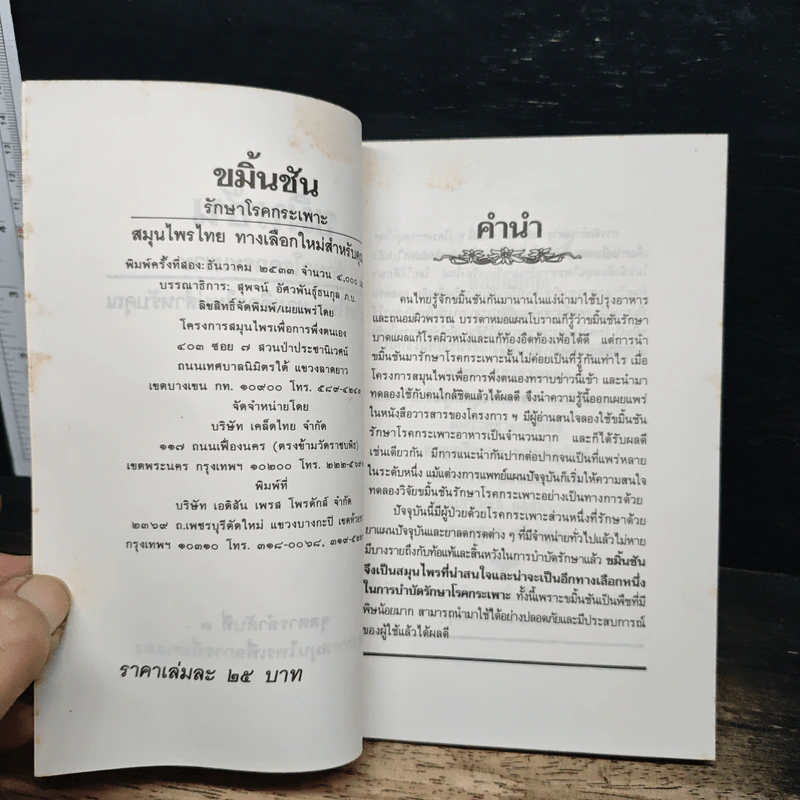 ขมิ้นชัน
รักษาโรคกระเพาะ
สมุนไพรไทย ทางเลือกใหม่สำหรับคุณ
พิมพ์ครั้งที่สอง: ธันวาคม ๒๕๓๓ จำนวน ๔,๐๐๐
บรรณาธิการ: สุพจน์ อัศวพันธุ์ธนกุล ภ.บ.
ลิขสิทธิ์จัดพิมพ์/เผยแพร่โดย
โครงการสมุนไพรเพื่อการพึ่งตนเอง
๔๐๓ ซอย ๗ สวนป่าประชานิเวศน์
ถนนเทศบาลนิมิตรใต้ แขวงลาดยาว
เขตบางเขน กท. ๑๐๙๐๐ โทร. ๕๘๙-๔๒๔๓
จัดจำหน่ายโดย
บริษัท เคล็ดไทย จำกัด
๑๑๗ ถนนเฟื่องนคร (ตรงข้ามวัดราชบพิธ)
เขตพระนคร กรุงเทพฯ ๑๐๒๐๐ โทร.
พิมพ์ที่
บริษัท เอดิสัน เพรส โพรดักส์ จำกัด
๒๓๖๙ ถ.เพชรบุรีตัดใหม่ แขวงบางกะปิ
กรุงเทพฯ ๑๐๓๑๐ โทร. ๓๑๘-๐๐๖๘,
ราคาเล่มละ ๒๕ บาท
คำนำ
คนไทยรู้จักขมิ้นชันกันมานานในแง่นำมาใช้ปรุงอาหาร
และถนอมผิวพรรณ บรรดาหมอแผนโบราณก็รู้ว่าขมิ้นชันรักษา
บาดแผลแก้โรคผิวหนังและแก้ท้องอืดท้องเฟ้อได้ดี แต่การนำ
ขมิ้นชันมารักษาโรคกระเพาะนั้นไม่ค่อยเป็นที่รู้กันเท่าไร เมื่อ
โครงการสมุนไพรเพื่อการพึ่งตนเองทราบข่าวนี้เข้า และนำมา
ทดลองใช้กับคนใกล้ชิดแล้วได้ผลดี จึงนำความรู้นี้ออกเผยแพร่
ในหนังสือวารสารของโครงการ ฯ มีผู้อ่านสนใจลองใช้ขมิ้นชัน
รักษาโรคกระเพาะอาหารเป็นจำนวนมาก และก็ได้รับผลดี
เช่นเดียวกัน มีการแนะนำกันปากต่อปากจนเป็นที่แพร่หลาย
ในระดับหนึ่ง แม้แต่วงการแพทย์แผนปัจจุบันก็เริ่มให้ความสนใจ
ทดลองวิจัยขมิ้นชันรักษาโรคกระเพาะอย่างเป็นทางการด้วย
ปัจจุบันนี้มีผู้ป่วยด้วยโรคกระเพาะส่วนหนึ่งที่รักษาด้วย
ยาแผนปัจจุบันและยาลดกรดต่าง ๆ ที่มีจำหน่ายทั่วไปแล้วไม่หาย
มีบางรายถึงกับท้อแท้และสิ้นหวังในการบำบัดรักษาแล้ว ขมิ้นชัน
จึงเป็นสมุนไพรที่น่าสนใจและน่าจะเป็นอีกทางเลือกหนึ่ง
ในการบำบัดรักษาโรคกระเพาะ ทั้งนี้เพราะขมิ้นชันเป็นพืชที่มี
พิษน้อยมาก สามารถนำมาใช้ได้อย่างปลอดภัยและมีประสบการณ์
ของผู้ใช้แล้วได้ผลดี